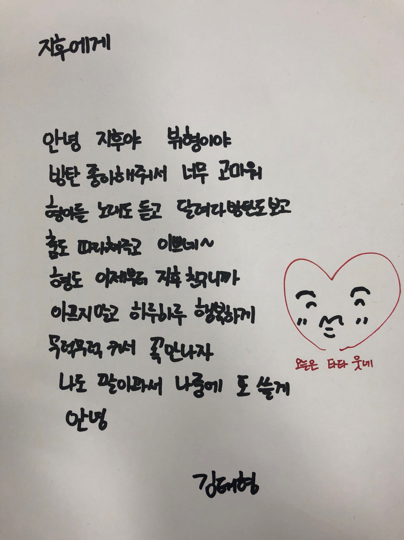 지후에게
안녕 지후야 뷔형이야
방탄 좋아해줘서 너무 고마워
형아들 노래도 듣고 달려라방탄도보고
춤도 따라해주고 이쁘네~
형도 이제부터 지후 친구니까
아프지말고 하루하루 행복하게
무럭무럭 커서 꼭만나자
나도 말이파서 나중에 또 쓸게
안녕
오늘은 타타 웃네
김태형